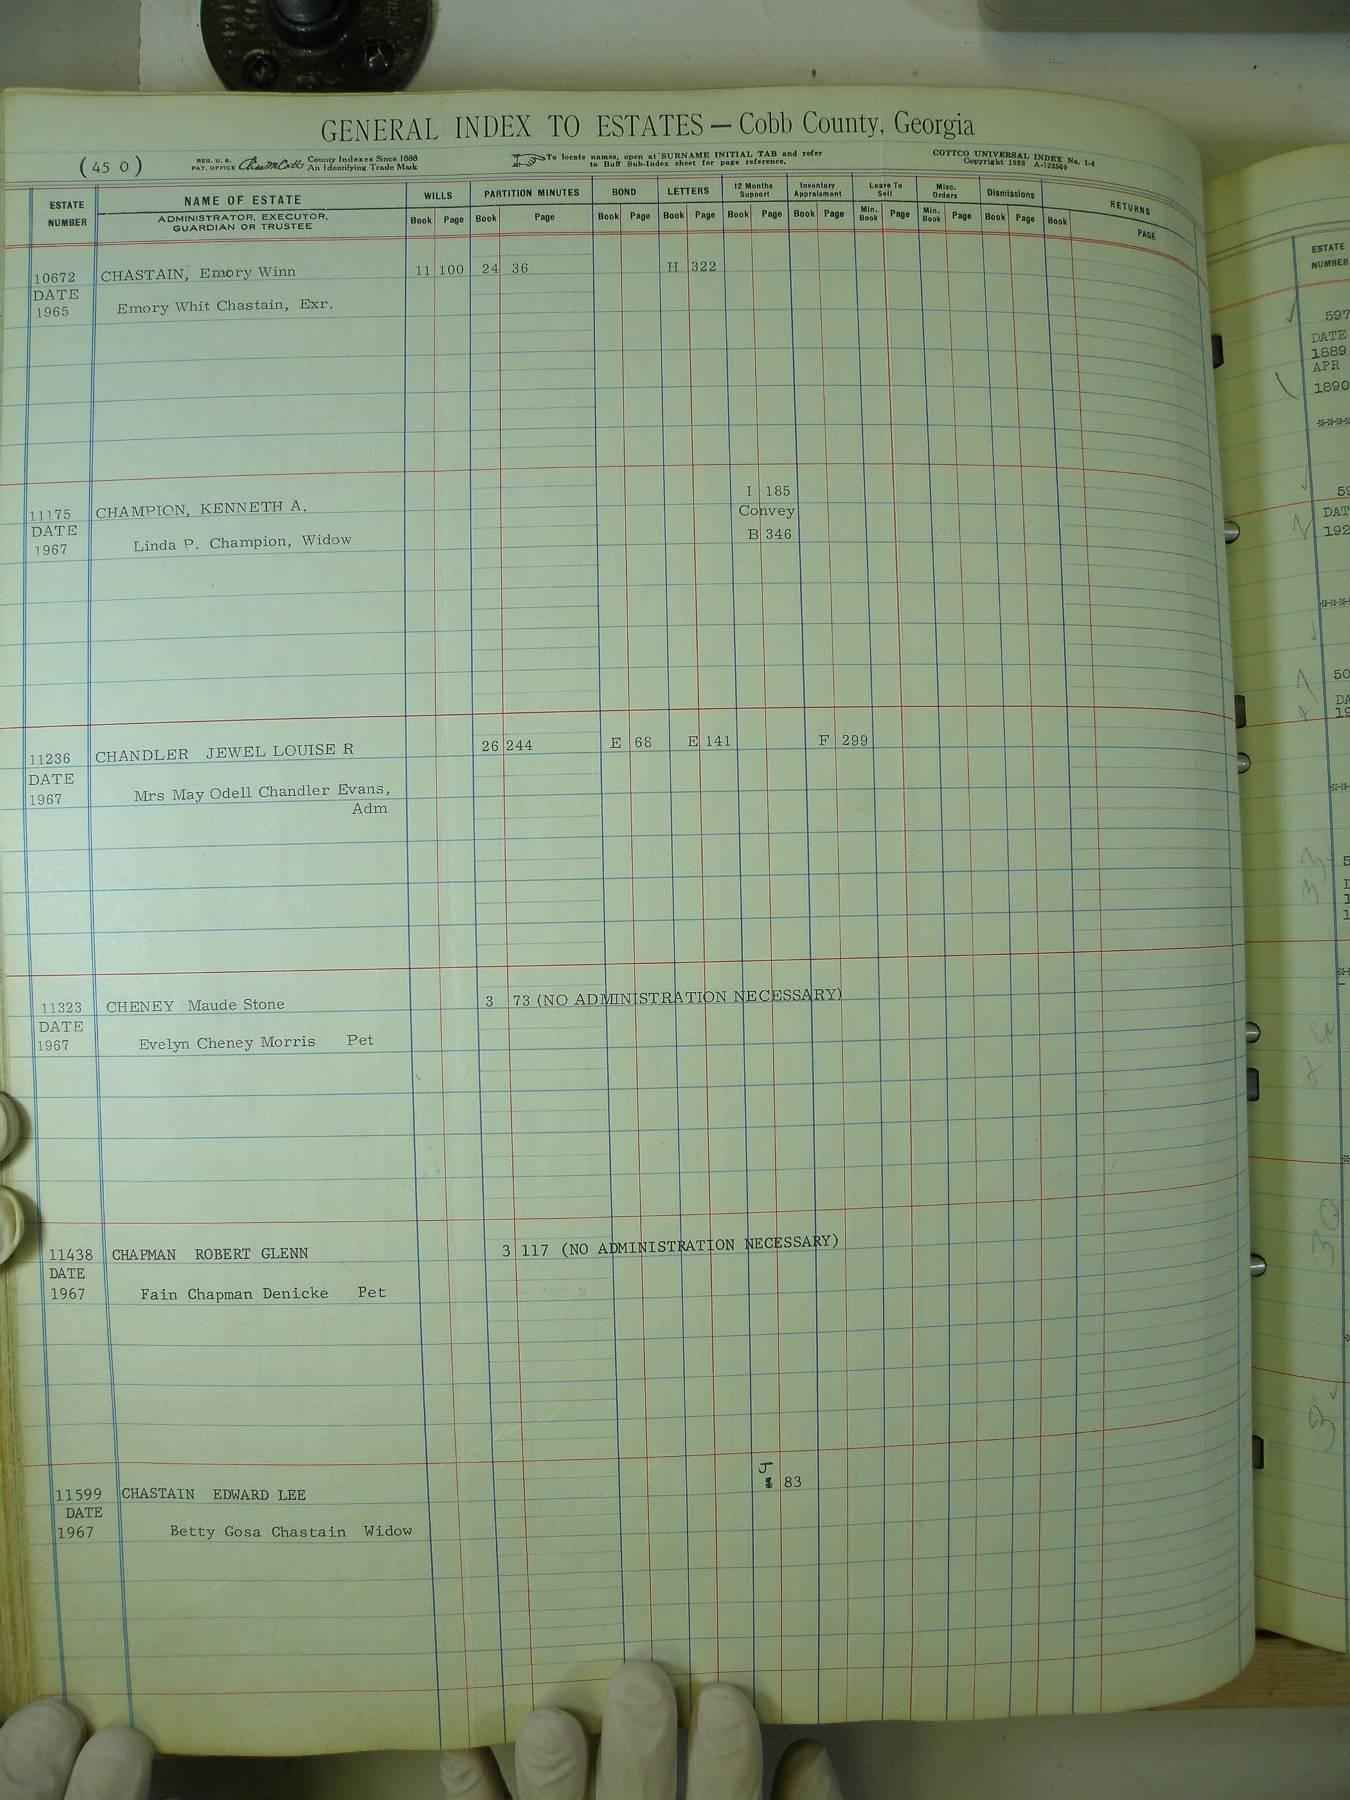 GENERAL INDEX TO ESTATES — Cobb County, Georgia
(45 0)
REG. U. S. PAT. OFFICE
County Indexes Since 1888
An Identifying Trade Mark
To locate names, open at SURNAME INITIAL TAB and refer
to Buff Sub-Index sheet for page reference.
COTTCO UNIVERSAL INDEX No. 1-4
Copyright 1953 A-122569
ESTATE NUMBER
NAME OF ESTATE
ADMINISTRATOR, EXECUTOR,
GUARDIAN OR TRUSTEE
WILLS PARTITION MINUTES BOND LETTERS 12 Months Support Inventory Appraisment Leave To Sell Misc. Orders Dismissions RETURNS
Book Page Book Page Book Page Book Page Book Page Book Page Min. Book Page Min. Book Page Book Page Book PAGE
10672 CHASTAIN, Emory Winn 11 100 24 36 H 322
DATE
1965 Emory Whit Chastain, Exr.
I 185
11175 CHAMPION, KENNETH A. Convey
DATE B 346
1967 Linda P. Champion, Widow
11236 CHANDLER JEWEL LOUISE R 26 244 E 68 E 141 F 299
DATE
1967 Mrs May Odell Chandler Evans,
Adm
11323 CHENEY Maude Stone 3 73 (NO ADMINISTRATION NECESSARY)
DATE
1967 Evelyn Cheney Morris Pet
11438 CHAPMAN ROBERT GLENN 3 117 (NO ADMINISTRATION NECESSARY)
DATE
1967 Fain Chapman Denicke Pet
J
83
11599 CHASTAIN EDWARD LEE
DATE
1967 Betty Gosa Chastain Widow
ESTATE
NUMBER
597
DATE
1889
APR
1890